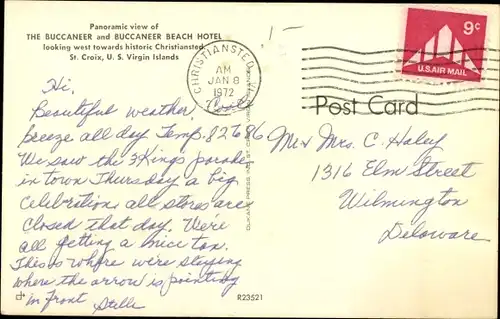 Panoramic view of
THE BUCCANEER and BUCCANEER BEACH HOTEL
looking west towards historic Christiansted,
St. Croix, U. S. Virgin Islands
1-
CHRISTIANSTED, V.I.
AM
JAN 8
1972
9c
U.S. AIR MAIL
Post Card
Hi,
Beautiful weather. Cool
breeze all day Temp. 82 to 86
We saw the 3 Kings parade
in town Thursday a big
celebration all stores are
closed that day. We're
all getting a nice tan.
This is where we're staying
where the arrow is pointing
in front Stelle
Mr & Mrs. C. Haley
1316 Elm Street
Wilmington
Delaware
R23521